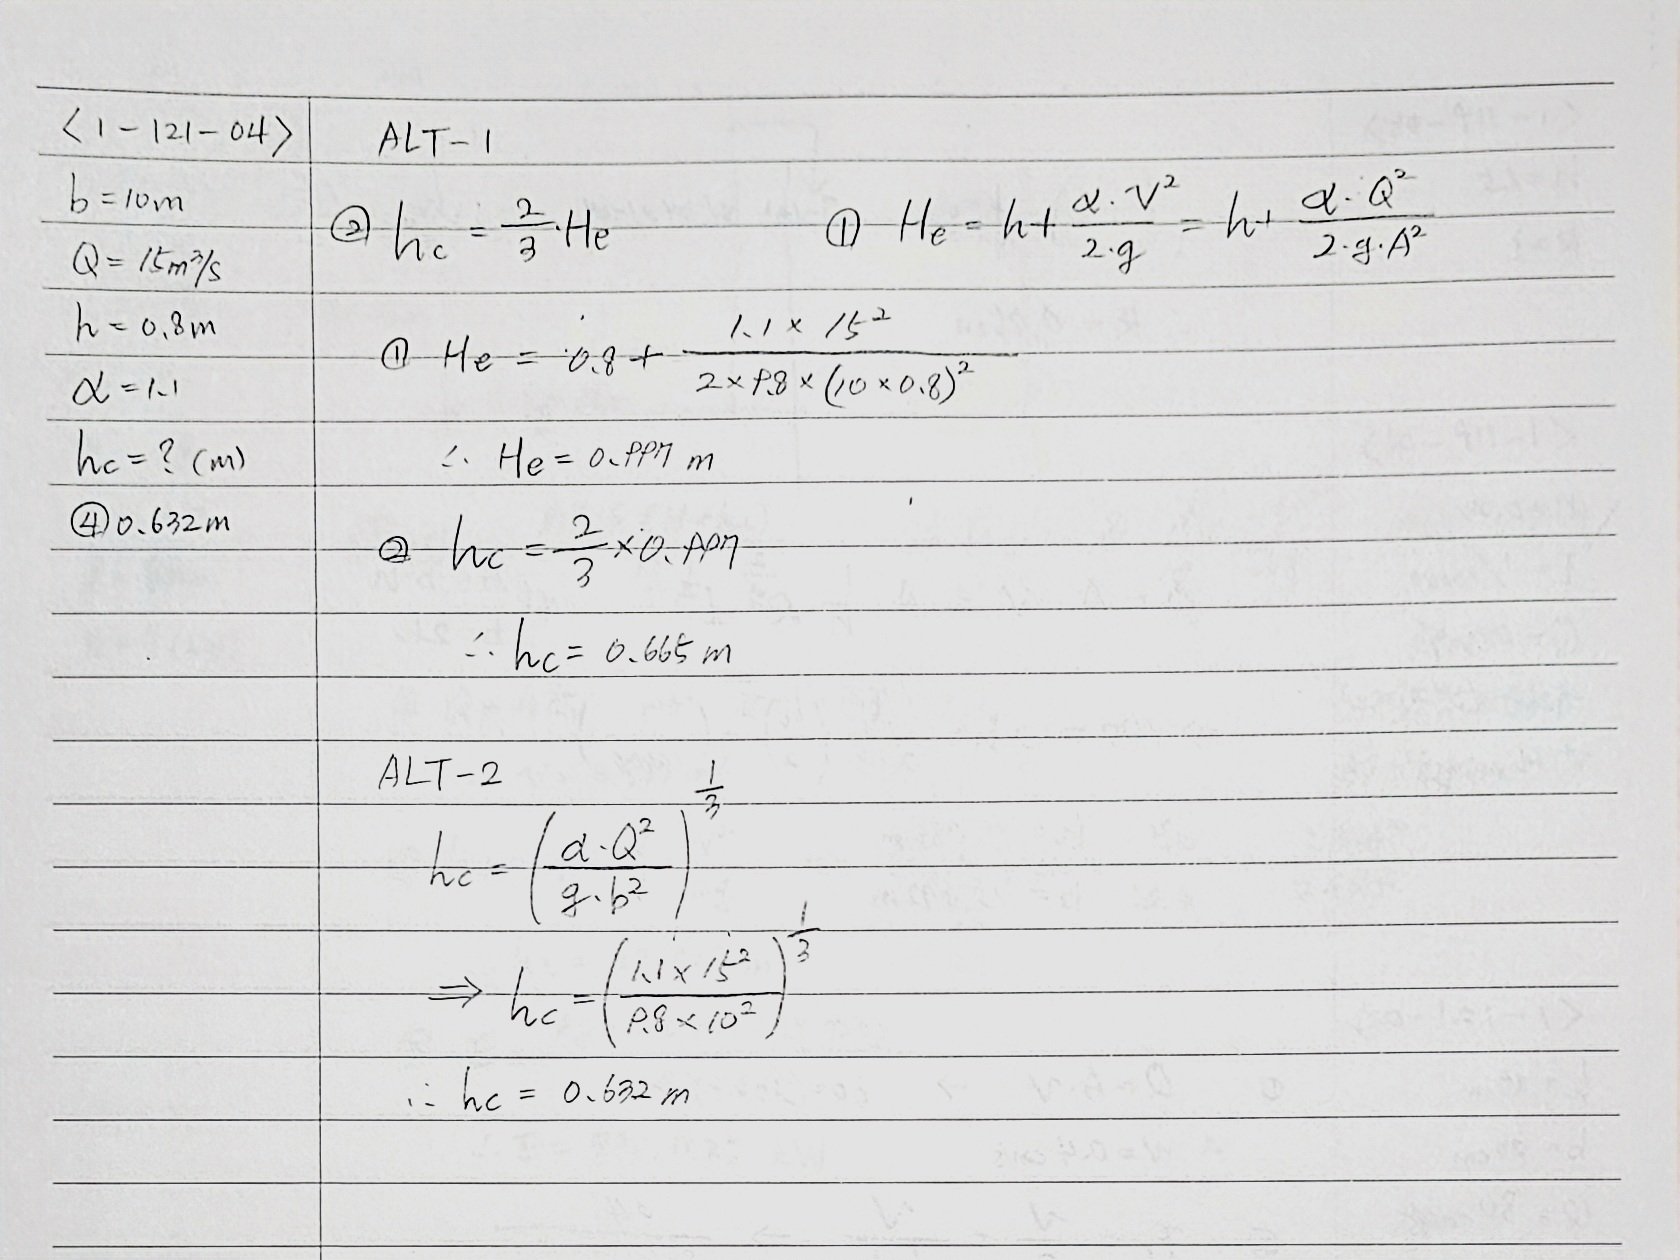 <1-121-04>
b=10m
Q=15m³/s
h=0.8m
α=1.1
hc=? (m)
④0.632m
ALT-1
② hc = 2/3·He ① He = h + α·V²/2·g = h + α·Q²/2·g·A²
① He = 0.8 + 1.1×15²/2×9.8×(10×0.8)²
∴ He = 0.997 m
② hc = 2/3 × 0.997
∴ hc = 0.665 m
ALT-2
hc = (α·Q²/g·b²)^1/3
⇒ hc = (1.1×15²/9.8×10²)^1/3
∴ hc = 0.632 m